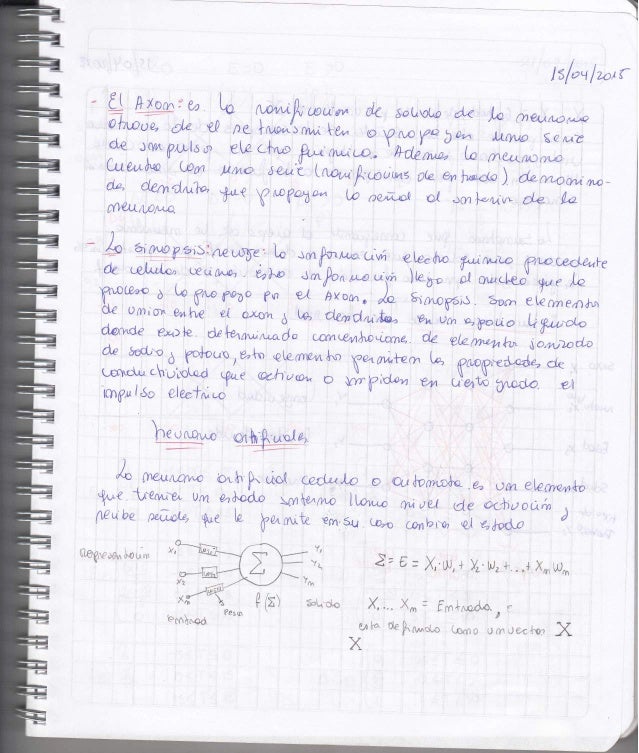 15/04/2015
- El Axon: es la ramificación de salida de la neurona
atraves de el se transmiten o propagen una serie
de impulsos electro quimico. Ademas la neurona
cuenta con una serie (ramificacions de entrada) denomina-
das dendritas que propagan la señal al interior de la
neurona
- La sinapsis: recoge: la información electro quimico procedente
de celulas vecinas. esta información llega al nucleo que la
procesa y la propaga por el Axon. La Sinapsis. Son elementos
de union entre el axon y las dendritas en un espacio liquido
donde existe determinado concentracione de elemento ionizado
de sodio y potacio, esto elemento permiten las propiedades de
conductividad que activan o impiden en cierto grado el
impulso electrico
neurona artificiales
La neurona artificial cedula o automata es un elemento
que tiene un estado interno llamo nivel de activación y
recibe señales que le permite en su caso cambiar el estado
representación X₁ peso Σ Y₁
X₂ peso Y₂
Xₘ peso Yₘ
entrad pesos f(Σ) salida
Σ = E = X₁·W₁ + X₂·W₂ + ... + Xₘ Wₘ
X₁... Xₘ = Entrada,
esta definida como un vector X
X